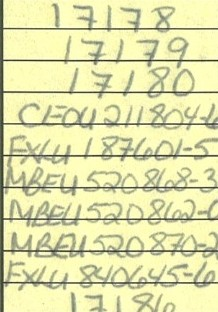 17178
17179
17180
CLOU 211804-6
FXLU 187601-5
MBEU 520868-3
MBEU 520862-0
MBEU 520870-2
FXLU 840645-6
17186